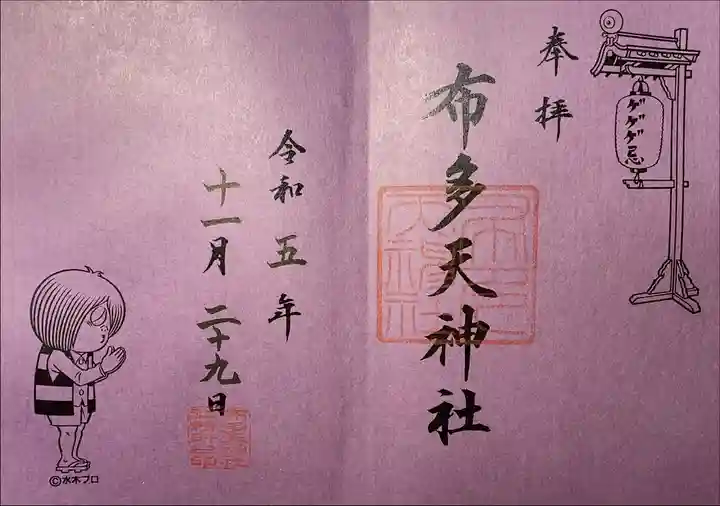 奉拝
ゲゲゲ忌
布多天神社
令和五年
十一月二十九日
©水木プロ